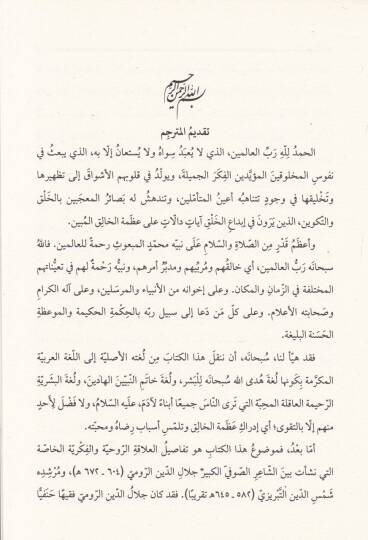 بسم الله الرحمن الرحيم
تقديمُ المترجِم
الحمدُ لِلّهِ رَبُّ العالمين، الذي لا يُعبَدُ سِواهُ ولا يُستعانُ إلّا به، الذي يبعثُ في
نفوسِ المخلوقينَ المؤيَّدين الفِكَرَ الجميلةَ، ويولّدُ في قلوبهم الأشواقَ إلى تظهيرها
وتَخْليقها في وجودٍ تتناهبُه أعينُ المتأمّلين، وتندهشُ له بَصائرُ المعجَبين بالخَلْق
والتكوين، الذين يَرَونَ في إبداعِ الخَلْقِ آياتٍ دالّاتٍ على عظَمة الخالِق المُبين.
وأعظَمُ قَدْرٍ مِن الصّلاةِ والسّلامِ عَلَى نبيِّه محمّدٍ المبعوثِ رحمةً للعالمين. فاللهُ
سبحانَه رَبُّ العالمين، أي خالقُهم ومُربّيهم ومدبِّرُ أمرهم، ونبيُّه رَحْمةٌ لهم في تعيُّناتهم
المختلفة في الزّمانِ والمكان. وعلى إخوانه من الأنبياء والمرسَلين، وعلى آله الكرامِ
وصَحابتِه الأعلام. وعلى كلِّ مَن دَعا إلى سبيل ربِّه بالحِكْمةِ الحكيمة والموعظةِ
الحَسَنة البليغة.
فقد هيّأ لنا، سُبحانَه، أن ننقلَ هذا الكتابَ مِن لُغته الأصليّة إلى اللّغة العربيّة
المكرَّمة بِكَونها لُغةَ هُدى الله سُبحانَه لِلْبَشَر، ولُغةَ خاتَمِ النّبيّينَ الهادينَ، ولُغةَ البشَريّةِ
الرّحيمة العاقلة المحِبّة التي تَرى النّاسَ جميعًا أبناءً لآدَمَ، عليه السّلامُ، ولا فَضْلَ لأحدٍ
منهم إلّا بالتقوى؛ أي إدراكِ عظَمة الخالِق وتلمّسِ أسباب رِضاهُ ومحبّته.
أمّا بَعْدُ، فموضوعُ هذا الكتابِ هو تفاصيلُ العلاقةِ الرّوحيّة والفِكْريّة الخاصّة
التي نشأت بينَ الشّاعِرِ الصّوفيّ الكبيرِ جلالِ الدّين الرّوميّ (٦٠٤ ـ ٦٧٢ هـ)، ومُرْشِدِه
شَمْسِ الدّين التَّبْريزيّ (٥٨٢ ـ ٦٤٥هـ تقريبًا). فقد كان جلالُ الدّين الرّوميّ فقيهًا حَنَفيًّا